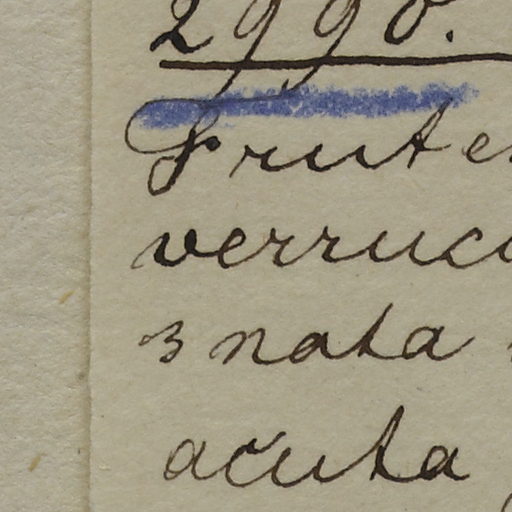 2990.
Frute
verruc
3 nata
acuta